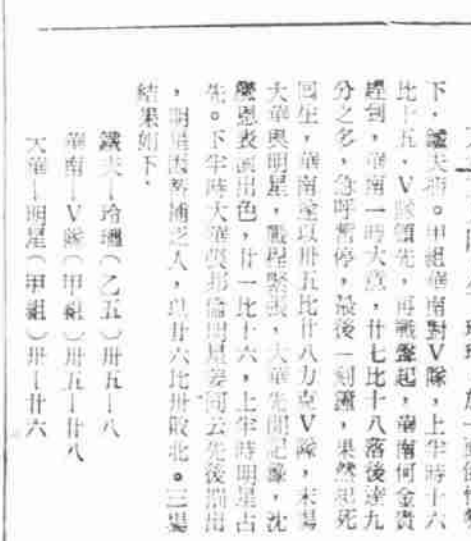 下，鐵夫衛。甲組華南對Ｖ隊，上半時十六
比十五，Ｖ隊領先，再戰聲起，華南何金貴
趕到，華南一時大意，廿七比十八落後達九
分之多，急呼暫停，最後一刻鐘，果然起死
回生，華南遂以卅五比廿八力克Ｖ隊，末場
大華與明星，戰程緊張，大華先開記錄，沈
表演出色，廿一比十六，上半時明星占
先。下半時大華 先後
，明星因 補乏人，以廿六比卅敗北。三場
結果如下，
鐵夫—玲瓏（乙五）卅五—八
華南—Ｖ隊（甲組）卅五—廿八
大華—明星（甲組）卅—廿六